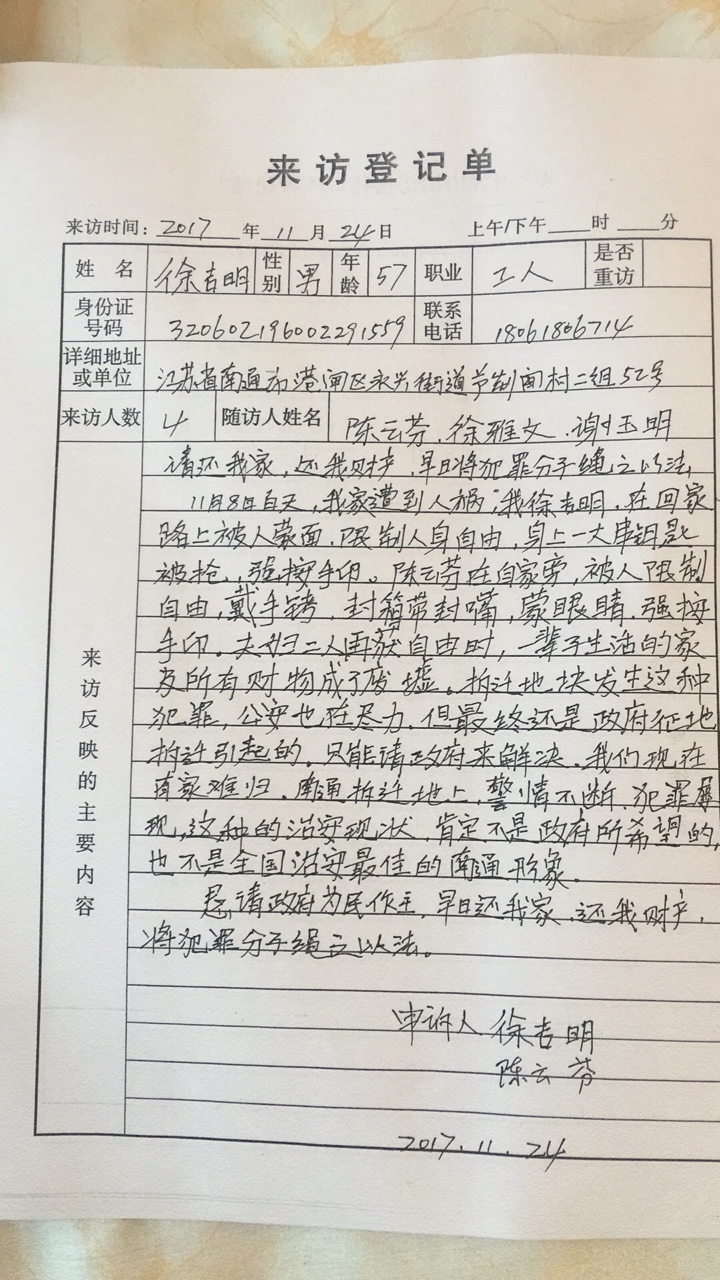 来访登记单
来访时间：2017年11月24日 上午/下午 时 分
姓名 徐吉明 性别 男 年龄 57 职业 工人 是否重访
身份证号码 320602196002291559 联系电话 18061806714
详细地址或单位 江苏省南通市港闸区永兴街道节制闸村二组52号
来访人数 4 随访人姓名 陈云芬.徐雅文.谢玉明
来访反映的主要内容
请还我家，还我财产，早日将犯罪分子绳之以法
11月8日白天，我家遭到人祸，我徐吉明，在回家
路上被人蒙面.限制人身自由，身上一大串钥匙
被抢，强按手印。陈云芬在自家旁，被人限制
自由，戴手铐，封箱带封嘴，蒙眼睛.强按
手印。夫妇二人再获自由时，一辈子生活的家
及所有财物成了废墟。拆迁地块发生这种
犯罪，公安也在尽力.但最终还是政府征地
拆迁引起的.只能请政府来解决.我们现在
有家难归.南通拆迁地上，警情不断.犯罪屡
现，这种的治安现状，肯定不是政府所希望的，
也不是全国治安最佳的南通形象。
恳请政府为民作主，早日还我家.还我财产，
将犯罪分子绳之以法。
申诉人 徐吉明
陈云芬
2017.11.24